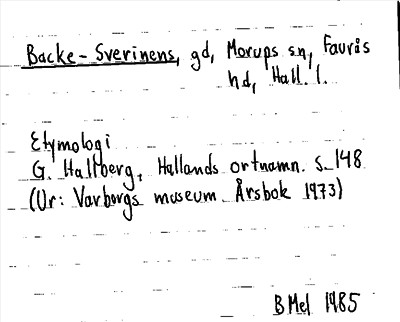 Backe-Sverinens, gd, Morups sn, Faurås
hd, Hall. l.
Etymologi
G. Hallberg, Hallands ortnamn. s. 148
(Ur: Varbergs museum. Årsbok 1973)
B Mel 1985